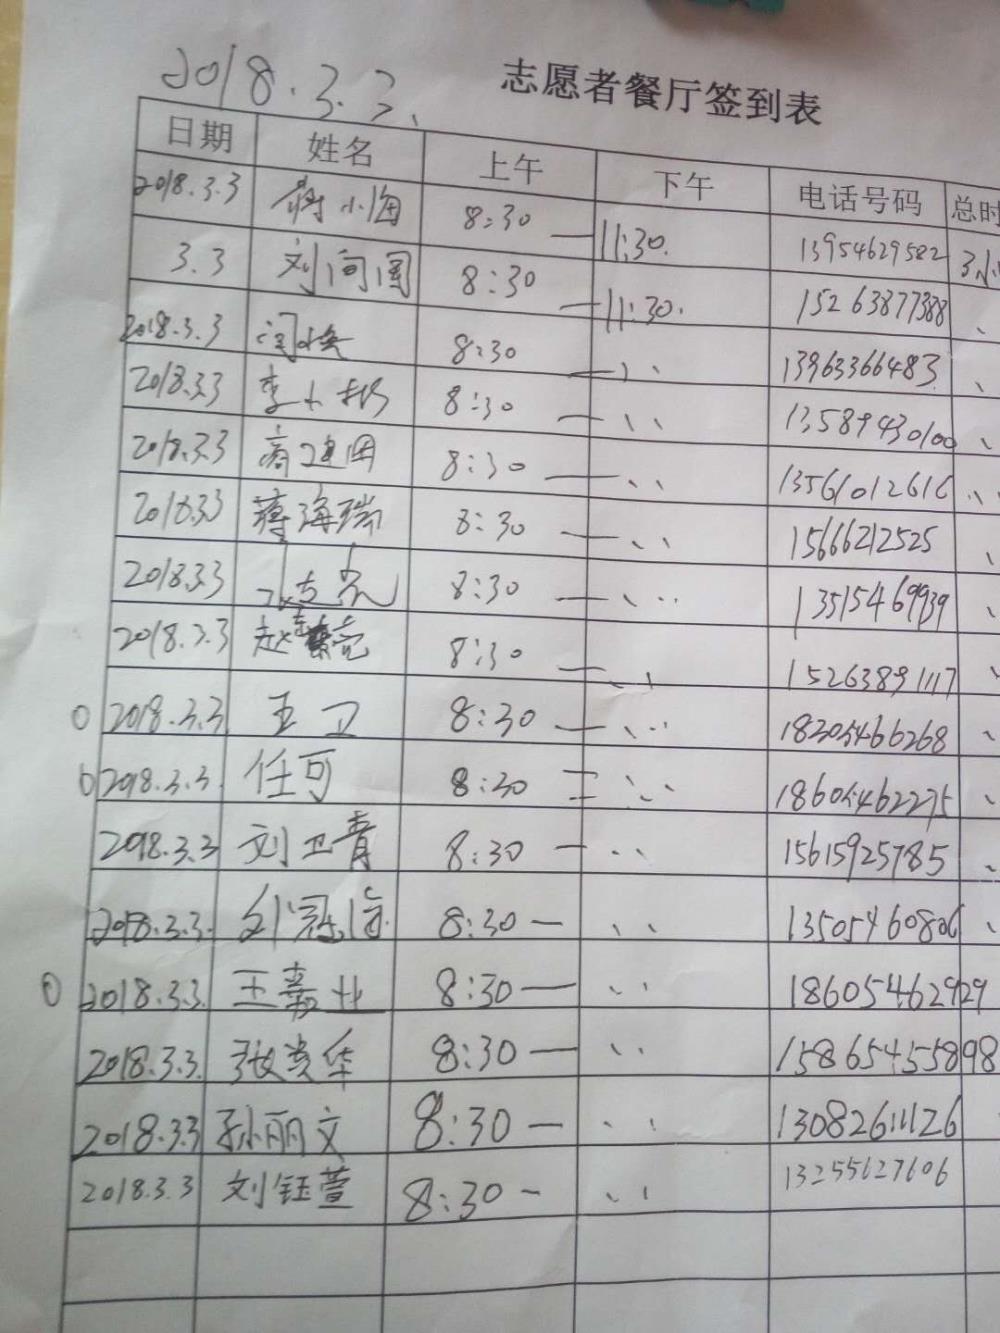 2018.3.3.
志愿者餐厅签到表
日期 姓名 上午 下午 电话号码 总时
2018.3.3 蒋小海 8:30 — 11:30. 13954629582 3小
3.3 刘间阁 8:30 — 11:30. 15263877388 、
2018.3.3 闫焕 8:30 — 、、 13963366483 、
2018.3.3 李小 8:30 — 、、 13589430100 、
2018.3.3 商建国 8:30 — 、、 13561012616 、、
2018.3.3 蒋海瑞 8:30 — 、、 15666212525 、
2018.3.3 8:30 — 、、 13515469939 、
2018.3.3 赵亮 8:30 — 、、 15263891117 、
0 2018.3.3 王卫 8:30 — 、、 18205466268 、
2018.3.3. 任可 8:30 — 、、 18605462275 、
2018.3.3 刘卫青 8:30 — 、、 15615925785 、
2018.3.3. 刘冠 8:30 — 、、 13505460806 、
0 2018.3.3. 王嘉业 8:30 — 、、 18605462929
2018.3.3. 张贵华 8:30 — 、、 15865455898
2018.3.3 孙丽文 8:30 — 、、 13082611126
2018.3.3 刘钰萱 8:30 – 、、 13255627606